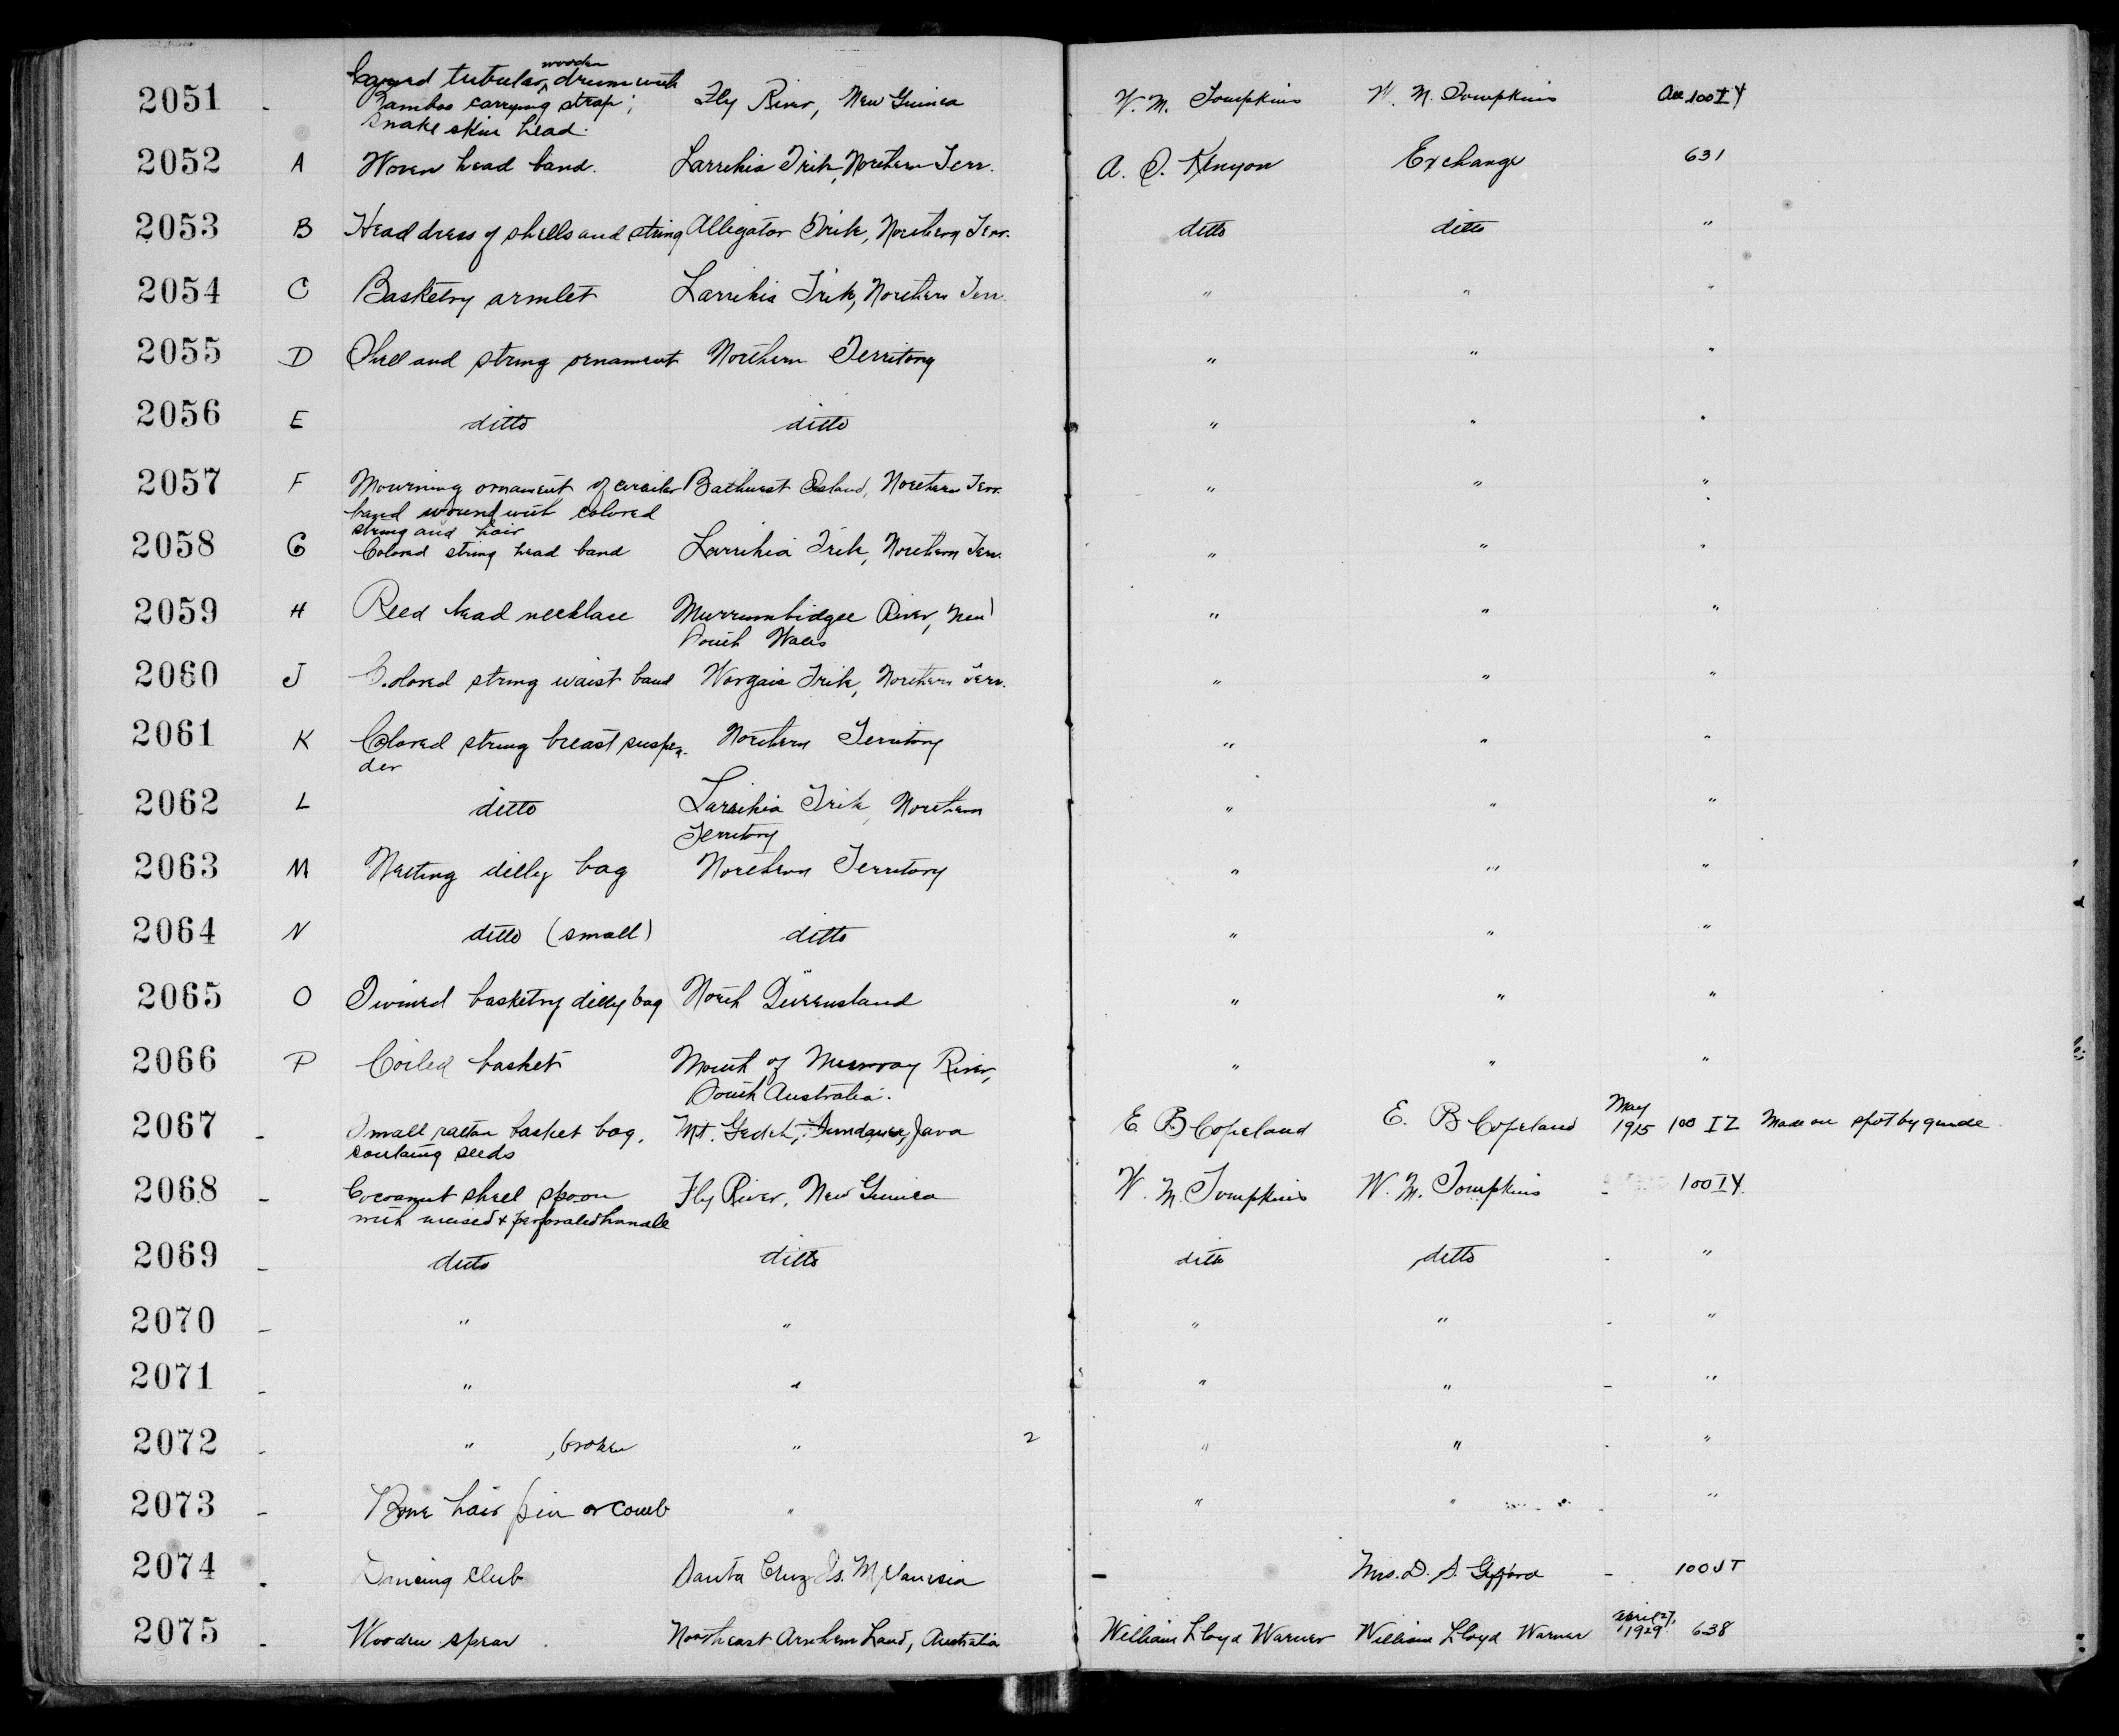 2051 - Carved tubular wooden drum with Fly River, New Guinea W. M. Tompkins W. M. Tompkins Acc. 100 I Y
Bamboo carrying strap;
Snake skin head.
2052 A Woven head band. Larrikia Tribe, Northern Terr. A. S. Kenyon Exchange 631
2053 B Headdress of shells and string Alligator Tribe, Northern Terr. ditto ditto "
2054 C Basketry armlet Larrikia Tribe, Northern Terr. " " "
2055 D Shell and string ornament Northern Territory " " "
2056 E ditto ditto " " "
2057 F Mourning ornament of circular Bathurst Island, Northern Terr. " " "
band wound with colored
string and hair
2058 G Colored string head band Larrikia Tribe, Northern Terr. " " "
2059 H Reed bead necklace Murrumbidgee River, New " " "
South Wales
2060 J Colored string waist band Worgaia Tribe, Northern Terr. " " "
2061 K Colored string breast suspen- Northern Territory " " "
der
2062 L ditto Larrikia Tribe, Northern " " "
Territory
2063 M Netting dilly bag Northern Territory " " "
2064 N ditto (small) ditto " " "
2065 O Twined basketry dilly bag North Queensland " " "
2066 P Coiled basket Mouth of Murray River, " " "
South Australia.
2067 - Small rattan basket bag, Mt. Gedeh, Sundanese, Java E. B. Copeland E. B. Copeland May 1915 100 I Z Made on spot by guide.
containg seeds
2068 - Cocoanut shell spoon Fly River, New Guinea W. M. Tompkins W. M. Tompkins - 100 I Y.
with incised & perforated handle
2069 - ditto ditto ditto ditto - "
2070 - " " " " - "
2071 - " " " " - "
2072 - " , broken " 2 " " - "
2073 - Bone hair pin or comb " " " - "
2074 - Dancing club Santa Cruz Is. Melanesia - Mrs. D. S. Gifford - 100 J T
2075 - Wooden spear Northeast Arnhem Land, Australia William Lloyd Warner William Lloyd Warner April 27, 1929 638